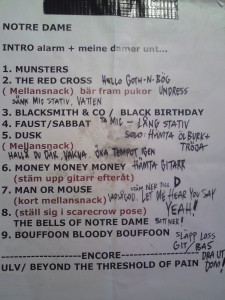 NOTRE DAME
INTRO alarm + meine damer unt...
1. MUNSTERS
2. THE RED CROSS HELLO GOTH-N-BÖG
( Mellansnack) bär fram pukor UNDRESS
SÄNK MIC STATIV, VATTEN
3. BLACKSMITH & CO / BLACK BIRTHDAY
4. FAUST/SABBAT TA MIC - LÅNG STATIV
5. DUSK SOLO: HÄMTA ÖLBURK +
( Mellansnack) TRÖJA
HALLÅ DU DÄR, VAKNA ÖKA TEMPOT IGEN
6. MONEY MONEY MONEY HÄMTA GITARR
(stäm upp gitarr efteråt)
7. MAN OR MOUSE STÄM NER TILL D
(kort mellansnack) VARSÅGOD. LET ME HEAR YOU SAY
8. (ställ sig i scarecrow pose) YEAH!
THE BELLS OF NOTRE DAME
9. BOUFFOON BLOODY BOUFFOON SLÄPP LOSS
GIT/BAS
-----ENCORE----- DRA UT
ULV/ BEYOND THE THRESHOLD OF PAIN